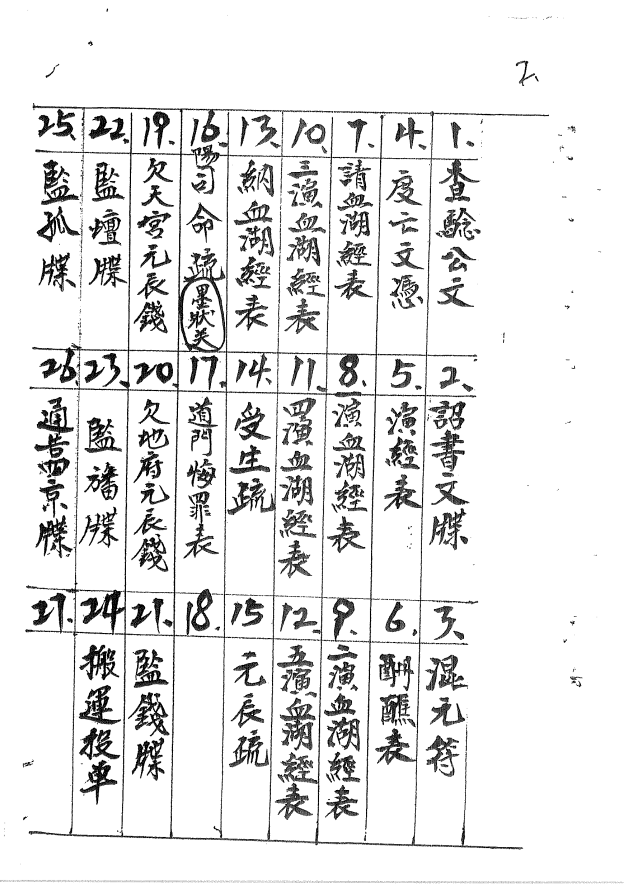 2.
1. 查驗公文
2. 詔書文牒
3. 混元符
4. 度亡文憑
5. 演經表
6. 酧醮表
7. 請血湖經表
8. 一演血湖經表
9. 二演血湖經表
10. 三演血湖經表
11. 四演血湖經表
12. 五演血湖經表
13. 納血湖經表
14. 受生疏
15 元辰疏
16. 陽司命疏 墨狀关
17. 道門悔罪表
18.
19. 欠天宮元辰錢
20. 欠地府元辰錢
21. 監錢牒
22. 監壇牒
23. 監旛牒
24 搬運投車
25. 監孤牒
26. 通告四京牒
27.